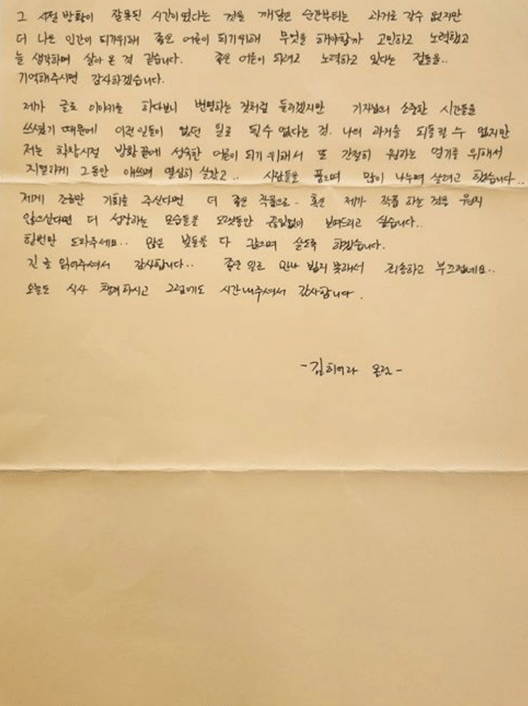 그 시절 방황이 잘못된 시간이었다는 것을 깨달은 순간부터는 과거로 갈수 없지만
더 나은 인간이 되기위해 좋은 어른이 되기위해 무엇을 해야할까 고민하고 노력했고
늘 생각하며 살아 온 것 같습니다. 좋은 어른이 되려고 노력하고 있다는 점들을..
기억해주시면 감사하겠습니다.
제가 글로 이야기를 하다보니 변명하는 것처럼 들리겠지만 기자님의 소중한 시간들을
쓰셨기 때문에 이런 일들이 없던 일로 될수 없다는 것. 나의 과거을 되돌릴 수 없지만
저는 학창시절 방황 끝에 성숙한 어른이 되기 위해서 또 간절히 원하는 연기를 위해서
치열하게 그동안 애쓰며 열심히 살았고.. 사람들을 품으며 많이 나누며 살려고 했습니다..
제게 조금만 기회를 주신다면 더 좋은 작품으로- 혹은 제가 작품 하는 것을 원치
않으신다면 더 성장하는 모습들을 오랫동안 끊임없이 보여드리고 싶습니다..
한번만 도와주세요.. 많은 빚들을 다 갚으며 살도록 하겠습니다.
긴 글 읽어주셔서 감사합니다.. 좋은 일로 만나 뵙지 못해서 죄송하고 부끄럽네요..
오늘도 식사 챙겨하시고 그럼에도 시간내주셔서 감사합니다.
-김히어라 올림-